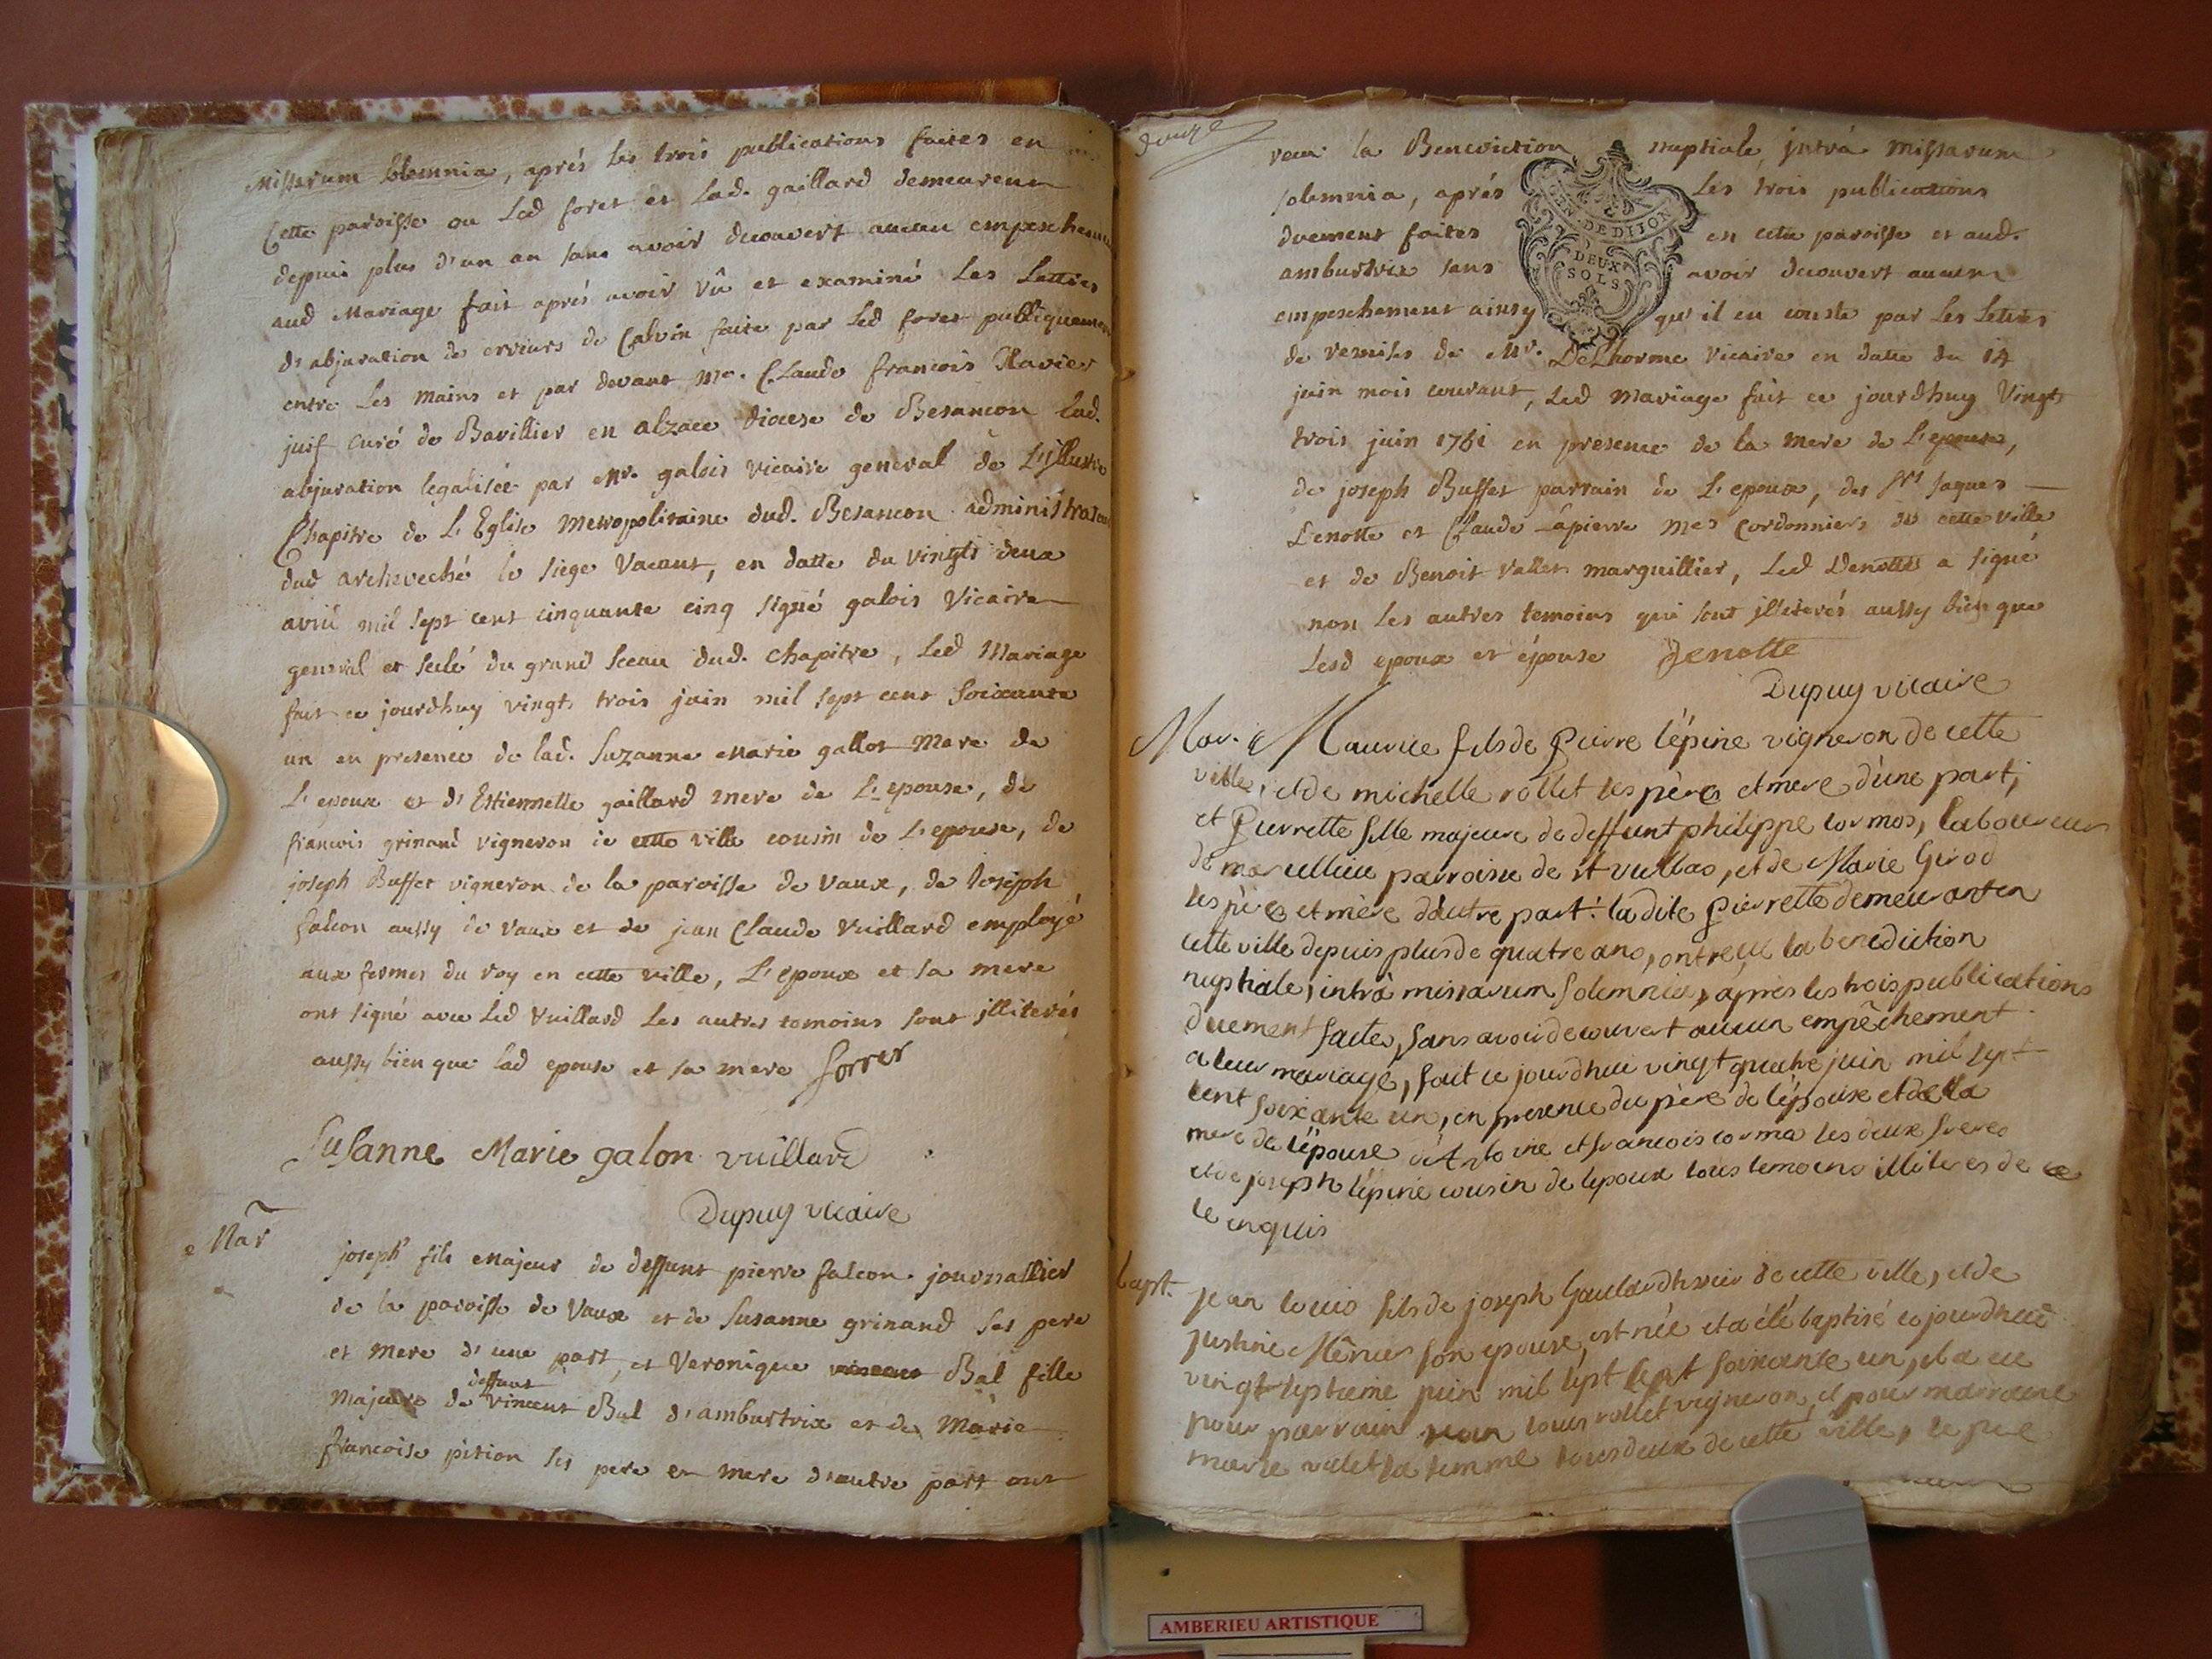 Missarum solemnia, aprés les trois publications faites en
Cette paroisse ou Led foret et Lad. gaillard demeurent
depuis plus d'un an sans avoir decouvert aucun empeschement
aud Mariage fait aprés avoir vû et examiné Les Lettres
d'abjuration de erreurs de Calvin faite par Led foret publiquement
entre Les mains et par devant Me. Claude francois Xavier
juif curé de Bavillier en alzace diocese de Besancon Lad.
abjuration legalisée par Mr. galois vicaire general de L'jllustre
Chapitre de L'Eglise metropolitaine dud. Besancon administrateur
dud archeveché le siege Vacant, en datte du vingts deux
avril mil sept cent cinquante cinq signé galois Vicaire
general et scelé du grand sceau dud. chapitre, Led Mariage
fait ce jourdhuy vingts trois juin mil sept cent soixante
un en presence de lad. Suzanne Marie gallot Mere de
L'epoux et d'Estiennette gaillard mere de L'epouse, de
francois grinand vigneron de cette ville cousin de L'epouse, de
joseph Buffet vigneron de la paroisse de Vaux, de Joseph
falcon aussy de Vaux et de jean Claude Vuillard employé
aux fermes du roy en cette ville, L'epoux et sa mere
ont signé avec Led Vuillard Les autres temoins sont jlliterés
aussy bien que lad epouse et sa mere forrer
Susanne Marie galon vuillard
Dupuy vicaire
Mar
joseph fils Majeur de deffunt pierre falcon journallier
de la paroisse de Vaux et de Susanne grinand ses pere
et mere d'une part, et Veronique Bal fille
deffunt
majeure de vincent Bal d'ambustrix et de Marie
francoise pition ses pere et mere d'autre part ont
douze
receu la Benediction nuptiale jntrá missarum
solemnia, aprés Les trois publications
duement faites en cette paroisse et aud.
ambustrix sans avoir decouvert aucun
empeschement ainsy qu'il en conste par Les Lettres
GEN. DE DIJON
DEUX
SOLS
de remises de Mr. DeLhorme vicaire en datte du 14
juin mois courant, Led mariage fait ce jourdhuy Vingts
trois juin 1761 en presence de la mere de L'epouse,
de joseph Buffet parrain de L'epoux, des Srs jaques
Denotte et Claude Lapierre Mes Cordonniers de cette ville
et de Benoit Vallet marguillier, Led Denotte a signé
non Les autres temoins qui sont jlliterés aussy bien que
Lesd epoux et épouse Denotte
Dupuy vicaire
Mar. Maurice fils de Pierre lépine vigneron de cette
ville, et de michelle rollet ses père et mere d'une part;
et Pierrette fille majeure de deffunt philippe cormos, laboureur
de marcillieu parroisse de st vulbas, et de Marie Girod
ses père et mère d'autre part: la dite Pierrette demeurant en
cette ville depuis plus de quatre ans, ont receu la benediction
nuptiale, intrà missarum solemnia, après les trois publications
duement faites, sans avoir decouvert aucun empêchement
a leur mariage, fait ce jourdhui vingt quatre juin mil sept
cent soixante un, en presence du père de l'époux et de la
mere de l'épouse d'Antoine et francois corma les deux freres
et de joseph lépine cousin de lepoux tous temoins illiteres de ce
enquis
bapt. jean louis fils de joseph Gaulard de cette ville, et de
justine son epouse, est née et a été baptisé ce jourdhui
vingt septieme juin mil sept sept soixante un, il a eu
pour parrain jean louis rollet vigneron, et pour marraine
marie valet sa femme tous deux de cette ville, le pere
AMBERIEU ARTISTIQUE